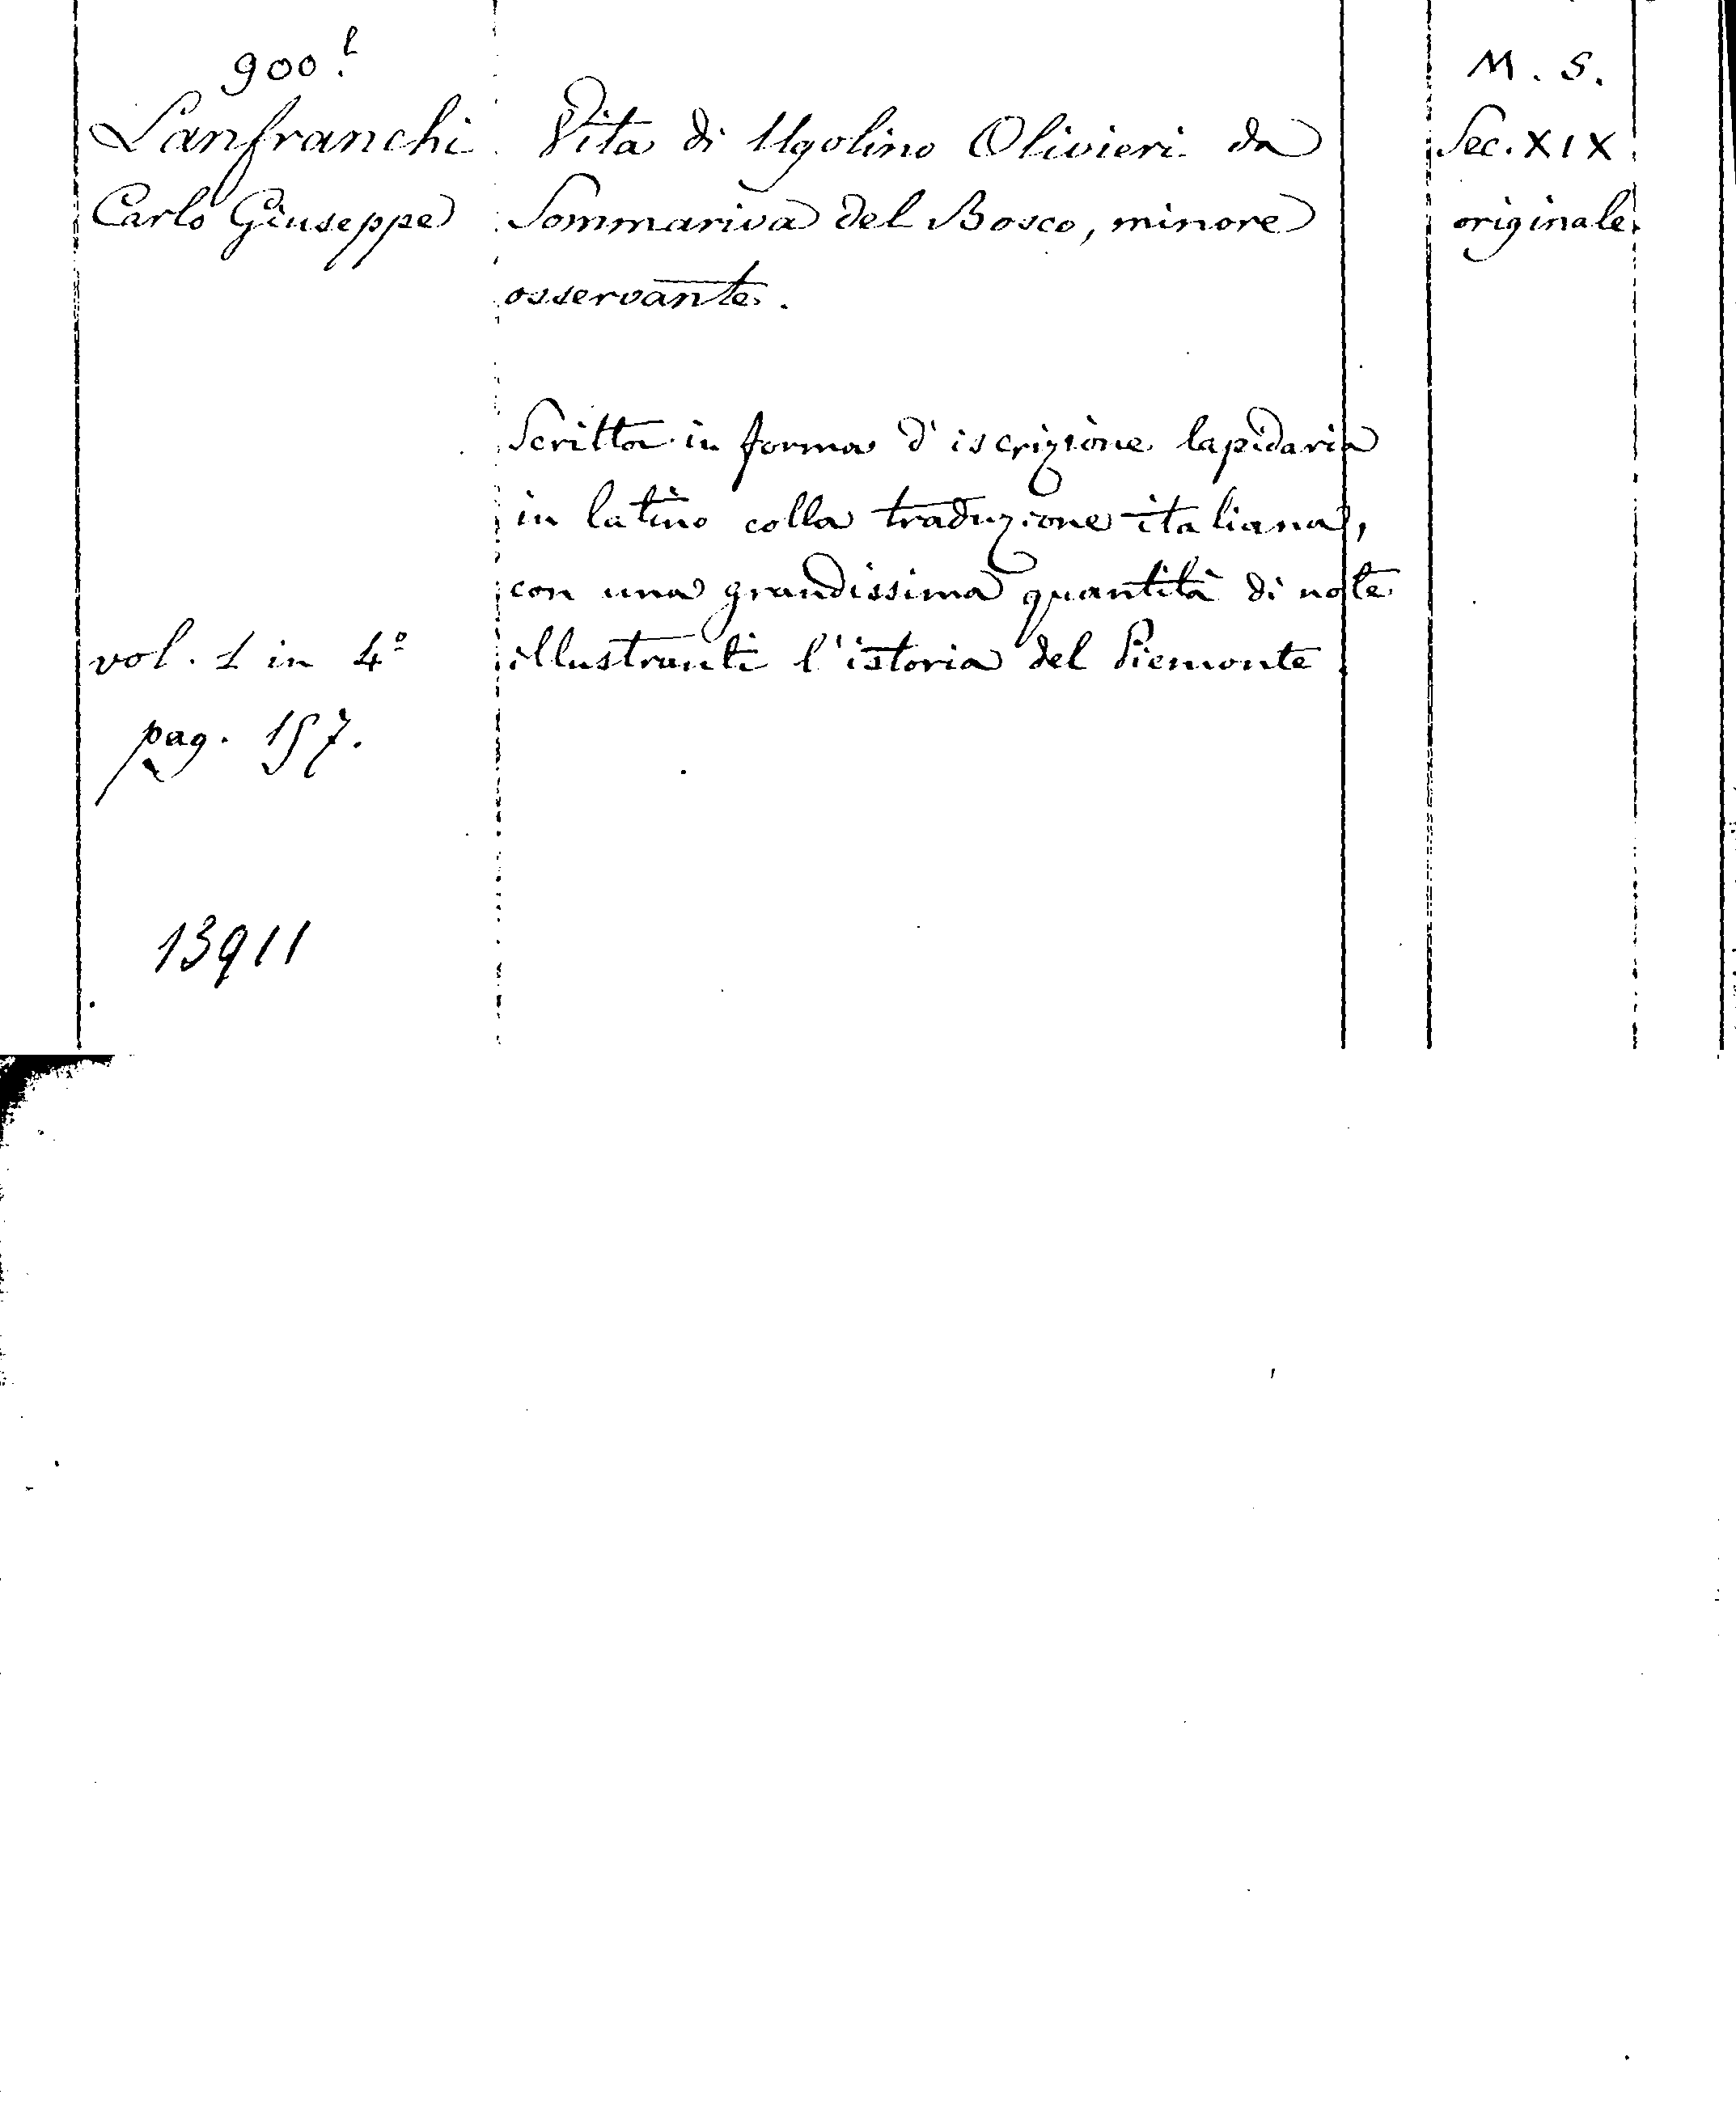 900.l
Lanfranchi
Carlo Giuseppe
vol. 1 in 4°
pag. 157.
13911
Vita di Ugolino Olivieri da
Sommariva del Bosco, minore
osservante.
Scritta in forma d'iscrizione lapidaria
in latino colla traduzione italiana,
con una grandissima quantità di note
illustranti l'istoria del Piemonte.
M. S.
Sec. XIX
originale.